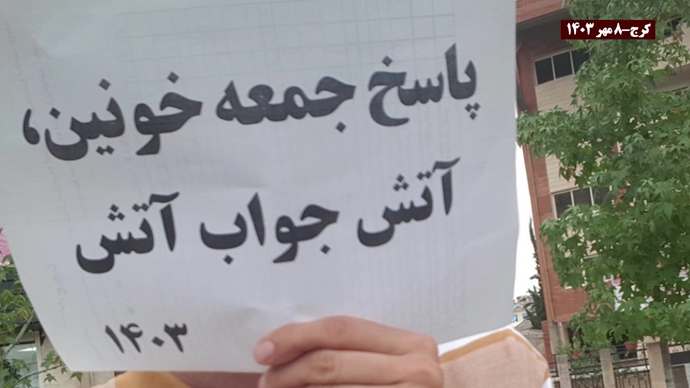 کرج-۸ مهر ۱۴۰۳
پاسخ جمعه خونین،
آتش جواب آتش
۱۴۰۳